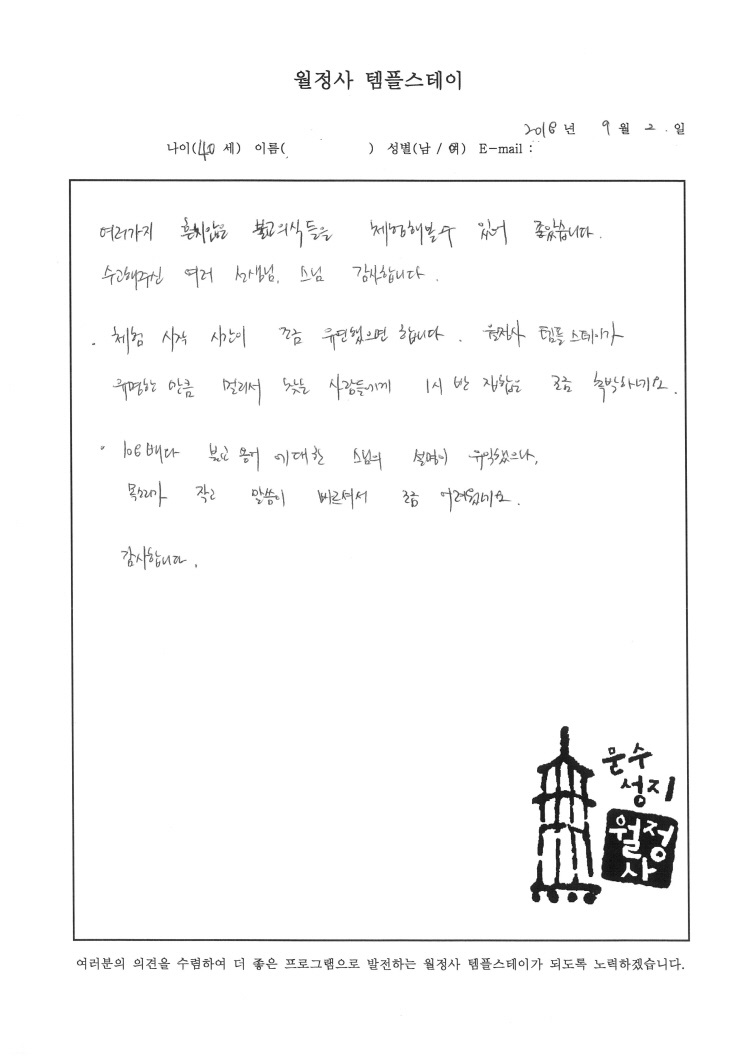 월정사 템플스테이
2018년 9월 2.일
나이(40 세) 이름( ) 성별(남 / 여) E-mail :
여러가지 흔치않은 불교의식들을 체험해볼수 있어 좋았습니다.
수고해주신 여러 선생님, 스님 감사합니다.
. 체험 시작 시간이 조금 유연했으면 합니다. 월정사 템플스테이가
유명한 만큼 멀리서 오는 사람들에게 1시 반 집합은 조금 촉박하네요.
· 108배나 불교 용어에 대한 스님의 설명이 유익했으나,
목소리가 작고 말씀이 빠르셔서 조금 어려웠네요.
감사합니다.
문수
성지
월정
사
여러분의 의견을 수렴하여 더 좋은 프로그램으로 발전하는 월정사 템플스테이가 되도록 노력하겠습니다.